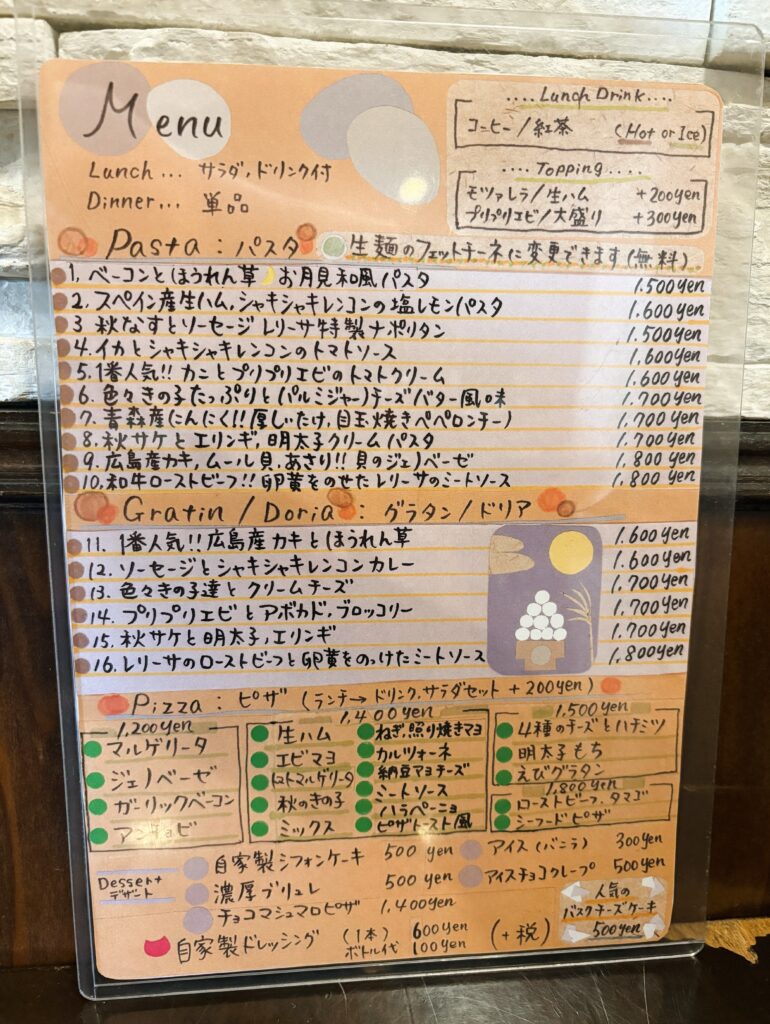 Menu
Lunch... サラダ,ドリンク付
Dinner... 単品
....Lunch Drink....
コーヒー/紅茶 (Hot or Ice)
....Topping....
モツァレラ/生ハム +200yen
プリプリエビ/大盛り +300yen
Pasta:パスタ 生麺のフェットチーネに変更できます(無料)
1,ベーコンとほうれん草🌙お月見和風パスタ 1.500yen
2.スペイン産生ハム,シャキシャキレンコンの塩レモンパスタ 1.600yen
3 秋なすとソーセージ レリーサ特製ナポリタン 1.500yen
4.イカとシャキシャキレンコンのトマトソース 1,600yen
5.1番人気!! カニとプリプリエビのトマトクリーム 1.600yen
6.色々きの子たっぷりと(パルミジャー)チーズバター風味 1.700yen
7.青森産にんにく!!厚しいたけ,目玉焼きペペロンチーノ 1,700yen
8.秋サケとエリンギ,明太子クリームパスタ 1.700yen
9.広島産カキ,ムール貝,あさり!!貝のジェノベーゼ 1.800yen
10.和牛ローストビーフ!!卵黄をのせたレリーサのミートソース 1.800yen
Gratin/Doria:グラタン/ドリア
11.1番人気!!広島産カキとほうれん草 1.600yen
12.ソーセージとシャキシャキレンコンカレー 1.600yen
13.色々きの子達とクリームチーズ 1.700yen
14.プリプリエビとアボカド,ブロッコリー 1.700yen
15.秋サケと明太子,エリンギ 1.700yen
16.レリーサのローストビーフと卵黄をのっけたミートソース 1,800yen
Pizza:ピザ(ランチ→ドリンク,サラダセット+200yen)
1,200yen
マルゲリータ
ジェノベーゼ
ガーリックベーコン
アンチョビ
1.400yen
生ハム
エビマヨ
トマトマルゲリータ
秋のきの子
ミックス
ねぎ,照り焼きマヨ
カルツォーネ
納豆マヨチーズ
ミートソース
ハラペーニョ
ピザトースト風
1.500yen
4種のチーズとハチミツ
明太子もち
えびグラタン
1.800yen
ローストビーフ,タマゴ
シーフードピザ
Dessert
デザート
自家製シフォンケーキ 500yen
濃厚ブリュレ 500yen
チョコマシュマロピザ 1,400yen
アイス(バニラ) 300yen
アイスチョコクレープ 500yen
人気の
バスクチーズケーキ
500yen
自家製ドレッシング (1本) 600yen
ボトル代 100yen
(+税)